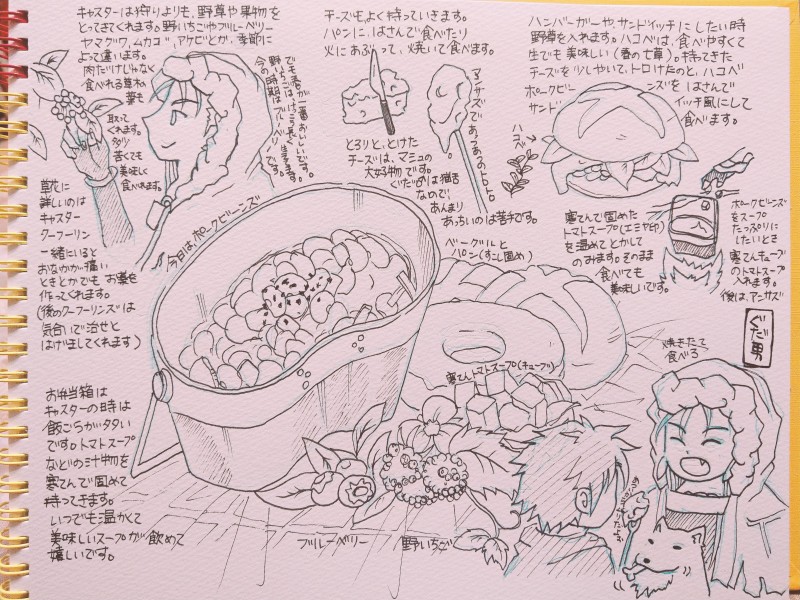 キャスターは狩りよりも、野草や果物を
とってきてくれます。野いちごやブルーベリー
ヤマグワ、ムカゴ、アケビとか、季節に
よって違います。
肉だけじゃなく
食べれる草木の
葉も
取って
くれます。
多少
苦くても
美味しく
食べれます。
野いちごはけっこう長く
今の時期はブルーベリー
です。
草花に
詳しいのは
キャスター
クーフーリン
一緒にいると
おなかが痛い
ときとかでもお薬を
作ってくれます。
(後のクーフーリンズは
気合いで治せと
はげましてくれます)
今日はポークビーンズ
チーズもよく持っていきます。
パンに、はさんで食べたり
火にあぶって、焼いて食べます。
とろりと、とけた
チーズは、マシュの
大好物です。
ぐだ男は猫舌
なので、
あんまり
あっちいのは苦手です。
ハンバーガーや、サンドイッチにしたい時
野草を入れます。ハコベは、食べやすくて
生でも美味しい(春の七草)。持ってきた
チーズを少しやいて、トロけたのと、ハコベ
ポークビーンズをはさんで
サンドイッチ風にして
食べます。
ハコベ
寒てんで固めた
トマトスープ(エミヤ印)
を温めてとかして
のみます。そのまま
食べても
美味しいです。
ポークビーンズ
をスープ
たっぷりに
したいとき
寒てんキューブ
のトマトスープ
入れます。
ベーグルと
パン(すこし固め)
寒てんトマトスープ(キューブ)
ぐだ男
焼きたて
食べろ
お弁当箱は
キャスターの時は
飯ごうが多い
です。トマトスープ
などの汁物を
寒てんで固めて
持ってきます。
いつでも温かくて
美味しいスープが飲めて
嬉しいです。
ブルーベリー
野いちご